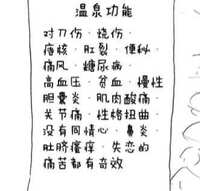 温泉功能
对刀伤·烧伤·
痔核·肛裂·便秘·
痛风·糖尿病·
高血压·贫血·慢性
胆囊炎·肌肉酸痛·
关节痛·性格扭曲·
没有同情心·鼻炎·
肚脐瘙痒·失恋的
痛苦都有奇效